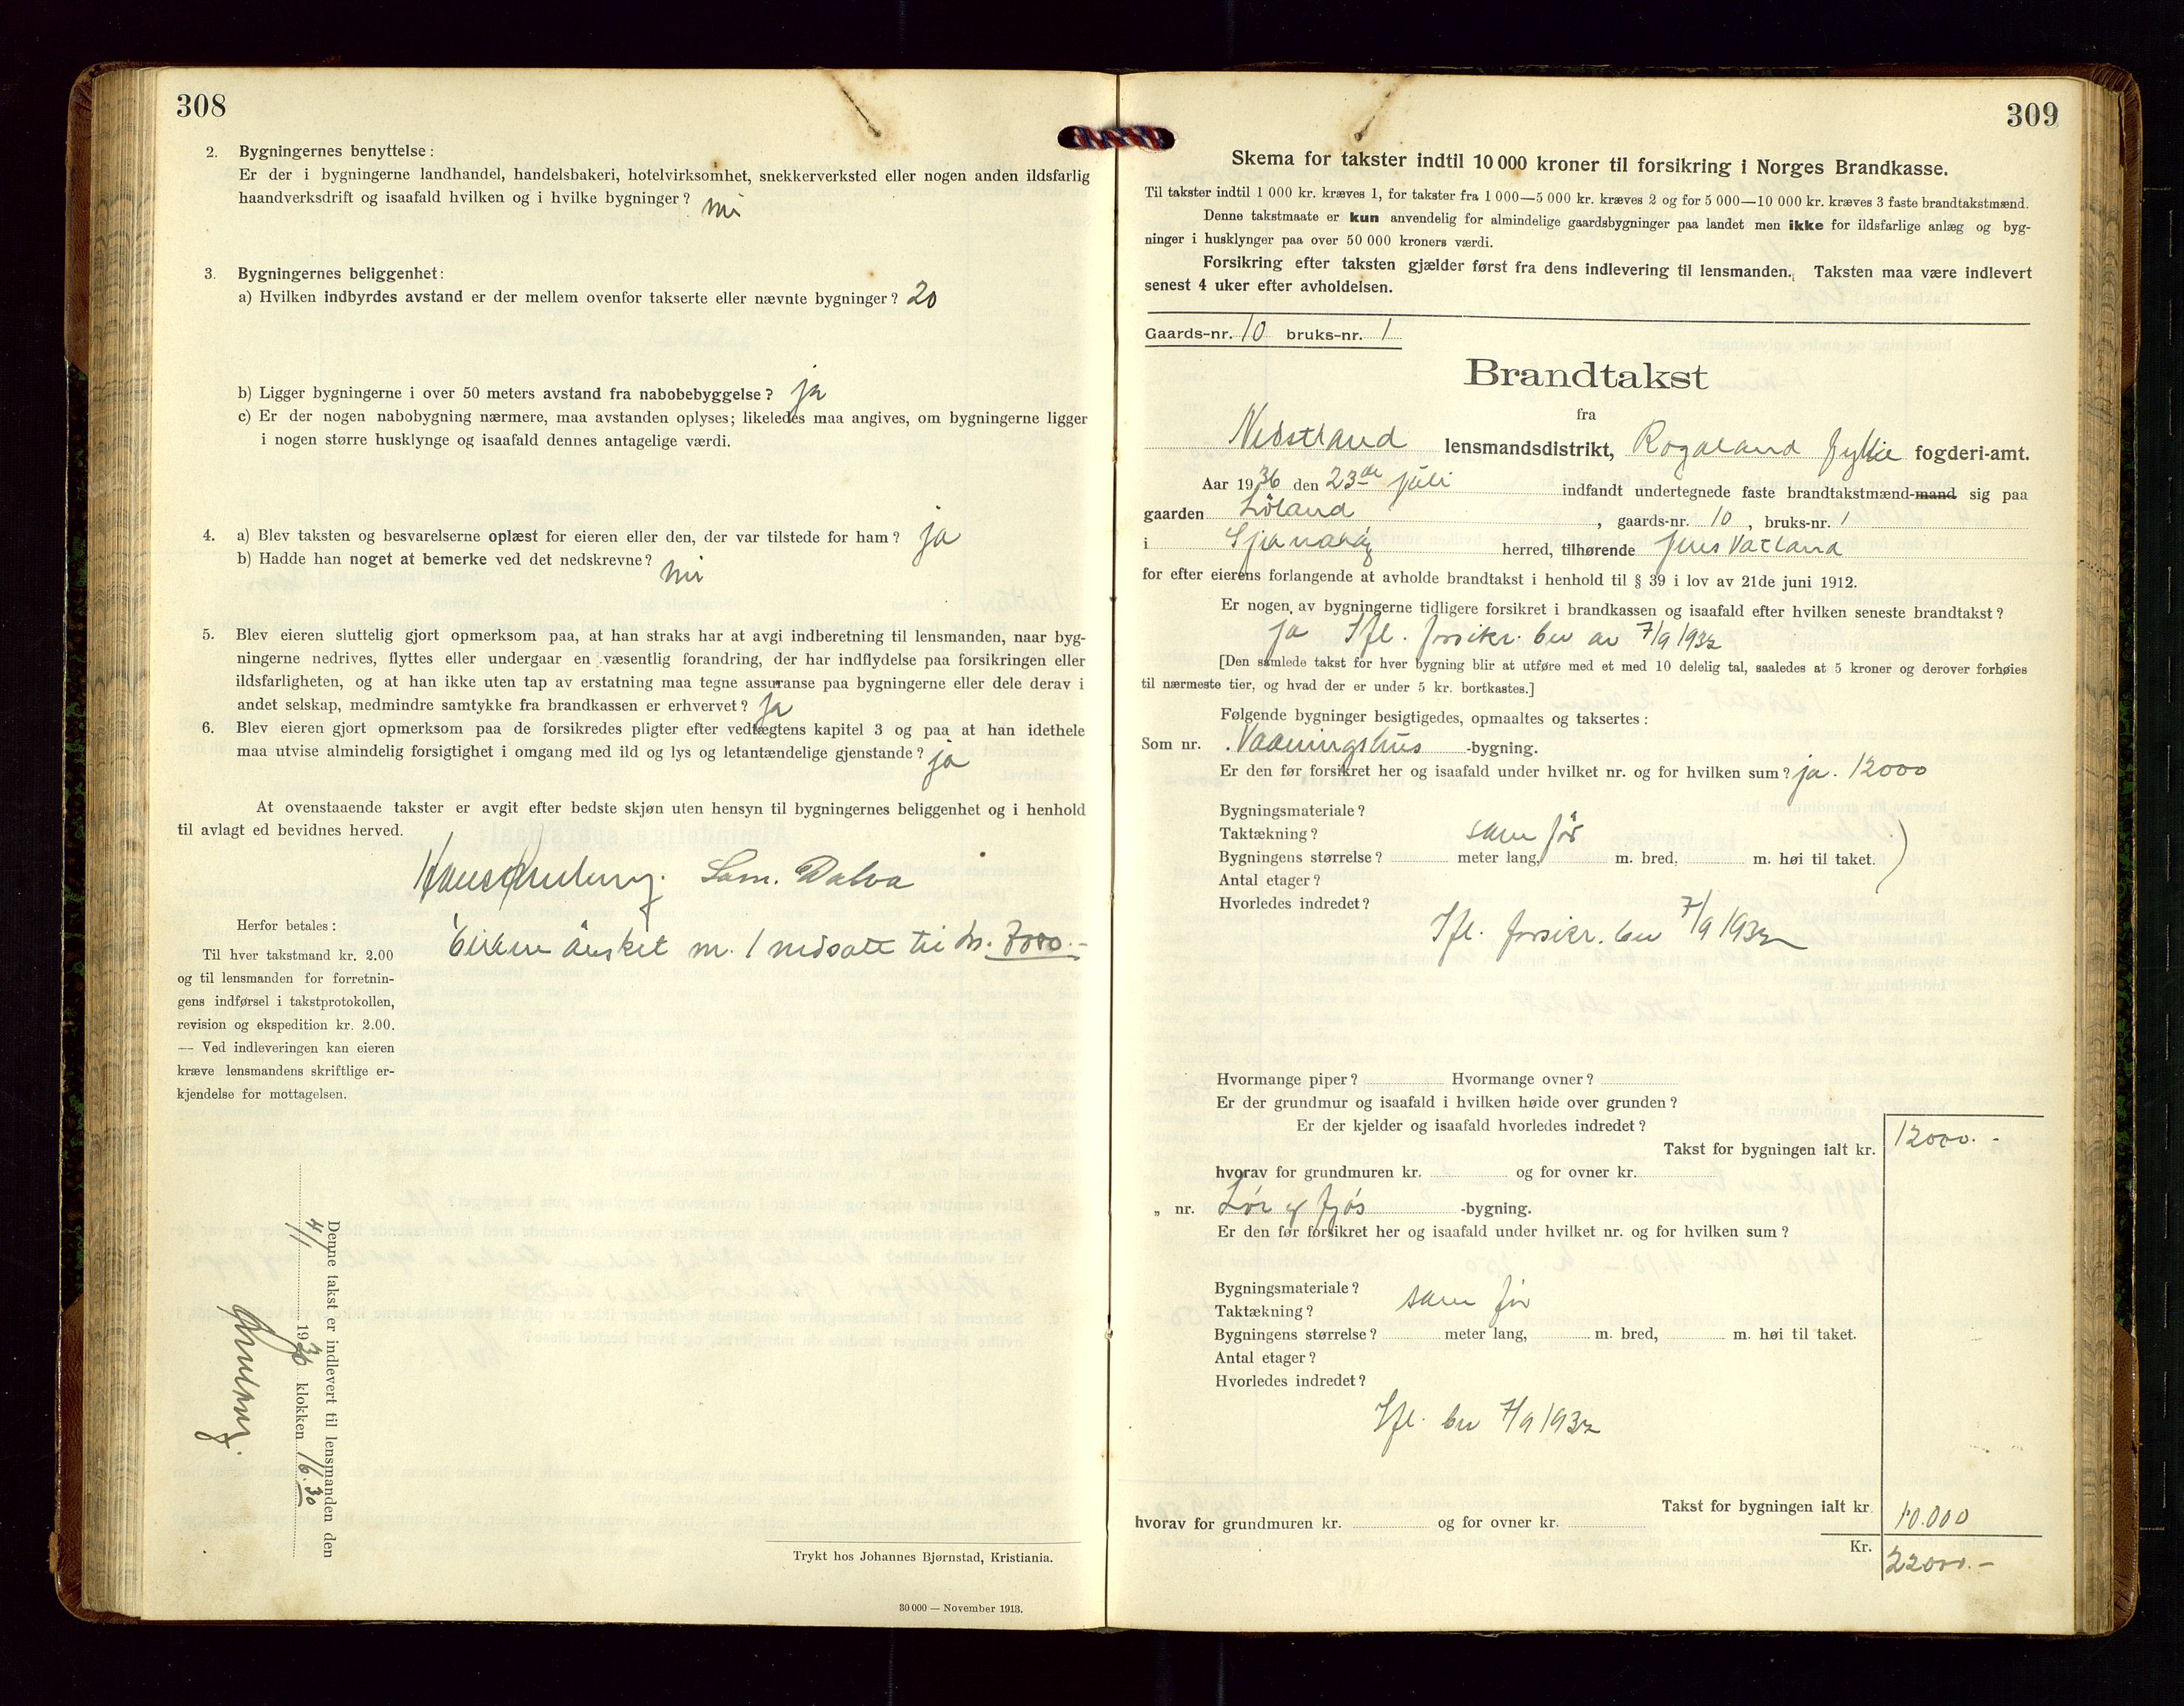 308
2. Bygningernes benyttelse:
Er der i bygningerne landhandel, handelsbakeri, hotelvirksomhet, snekkerverksted eller nogen anden ildsfarlig
haandverksdrift og isaafald hvilken og i hvilke bygninger?
3. Bygningernes beliggenhet:
a) Hvilken indbyrdes avstand er der mellem ovenfor takserte eller nævnte bygninger? 20
b) Ligger bygningerne i over 50 meters avstand fra nabobebyggelse? ja
c) Er der nogen nabobygning nærmere, maa avstanden oplyses; likeledes maa angives, om bygningerne ligger
i nogen større husklynge og isaafald dennes antagelige værdi.
4. a) Blev taksten og besvarelserne oplæst for eieren eller den, der var tilstede for ham? ja
b) Hadde han noget at bemerke ved det nedskrevne?
5. Blev eieren sluttelig gjort opmerksom paa, at han straks har at avgi indberetning til lensmanden, naar byg-
ningerne nedrives, flyttes eller undergaar en væsentlig forandring, der har indflydelse paa forsikringen eller
ildsfarligheten, og at han ikke uten tap av erstatning maa tegne assuranse paa bygningerne eller dele derav i
andet selskap, medmindre samtykke fra brandkassen er erhvervet? Ja
6. Blev eieren gjort opmerksom paa de forsikredes pligter efter vedtægtens kapitel 3 og paa at han idethele
maa utvise almindelig forsigtighet i omgang med ild og lys og letantændelige gjenstande? ja
At ovenstaaende takster er avgit efter bedste skjøn uten hensyn til bygningernes beliggenhet og i henhold
til avlagt ed bevidnes herved.
Sam. Dalva
Herfor betales:
nr. 1 nedsatt til kr. 7000.-
Til hver takstmand kr. 2.00
og til lensmanden for forretnin-
gens indførsel i takstprotokollen,
revision og ekspedition kr. 2.00.
— Ved indleveringen kan eieren
kræve lensmandens skriftlige er-
kjendelse for mottagelsen.
Denne takst er indlevert til lensmanden den
4/11 1936 klokken 16.30
Trykt hos Johannes Bjørnstad, Kristiania.
30 000 — November 1913.
309
Skema for takster indtil 10 000 kroner til forsikring i Norges Brandkasse.
Til takster indtil 1 000 kr. kræves 1, for takster fra 1 000—5 000 kr. kræves 2 og for 5 000—10 000 kr. kræves 3 faste brandtakstmænd.
Denne takstmaate er kun anvendelig for almindelige gaardsbygninger paa landet men ikke for ildsfarlige anlæg og byg-
ninger i husklynger paa over 50 000 kroners værdi.
Forsikring efter taksten gjælder først fra dens indlevering til lensmanden. Taksten maa være indlevert
senest 4 uker efter avholdelsen.
Gaards-nr. 10 bruks-nr. 1
Brandtakst
fra
Nedstrand lensmandsdistrikt, Rogaland fylke fogderi-amt.
Aar 1936 den 23de juli indfandt undertegnede faste brandtakstmænd-mand sig paa
gaarden Løland, gaards-nr. 10, bruks-nr. 1
i herred, tilhørende Jens Vatland
for efter eierens forlangende at avholde brandtakst i henhold til § 39 i lov av 21de juni 1912.
Er nogen av bygningerne tidligere forsikret i brandkassen og isaafald efter hvilken seneste brandtakst?
ja Ifl. forsikr. bev av 7/9 1932
[Den samlede takst for hver bygning blir at utføre med et med 10 delelig tal, saaledes at 5 kroner og derover forhøies
til nærmeste tier, og hvad der er under 5 kr. bortkastes.]
Følgende bygninger besigtigedes, opmaaltes og taksertes:
Som nr. Vaaningshus -bygning.
Er den før forsikret her og isaafald under hvilket nr. og for hvilken sum? ja. 12000
Bygningsmateriale?
Taktækning? som før
Bygningens størrelse? meter lang, m. bred, m. høi til taket.
Antal etager?
Hvorledes indredet?
Ifl. forsikr. bev 7/9 1932
Hvormange piper? Hvormange ovner?
Er der grundmur og isaafald i hvilken høide over grunden?
Er der kjelder og isaafald hvorledes indredet?
Takst for bygningen ialt kr. 12000.-
hvorav for grundmuren kr. og for ovner kr.
„ nr. Løe og fjøs -bygning.
Er den før forsikret her og isaafald under hvilket nr. og for hvilken sum?
Bygningsmateriale?
Taktækning? som før
Bygningens størrelse? meter lang, m. bred, m. høi til taket.
Antal etager?
Hvorledes indredet?
Ifl. bev 7/9 1932
Takst for bygningen ialt kr. 10.000
hvorav for grundmuren kr. og for ovner kr.
Kr. 22000.-